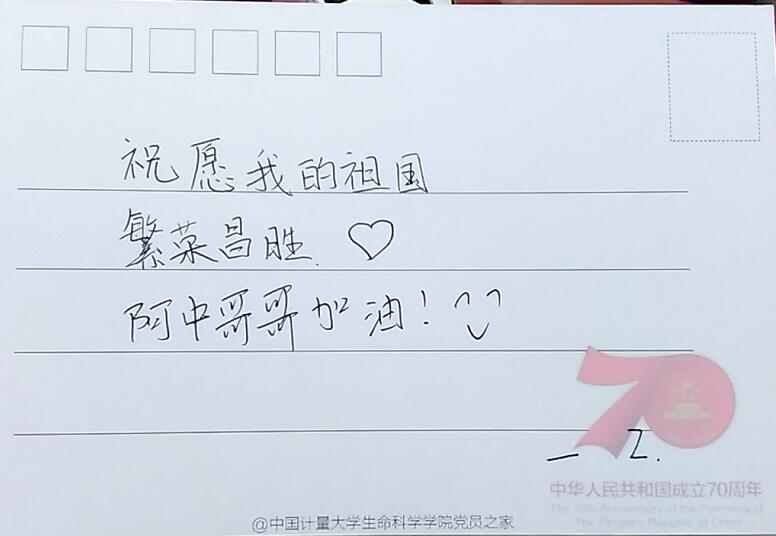 祝愿我的祖国
繁荣昌胜.♡
阿中哥哥加油!
一 Z.
70
中华人民共和国成立70周年
The 70th Anniversary of the Founding of
The People's Republic of China
@中国计量大学生命科学学院党员之家